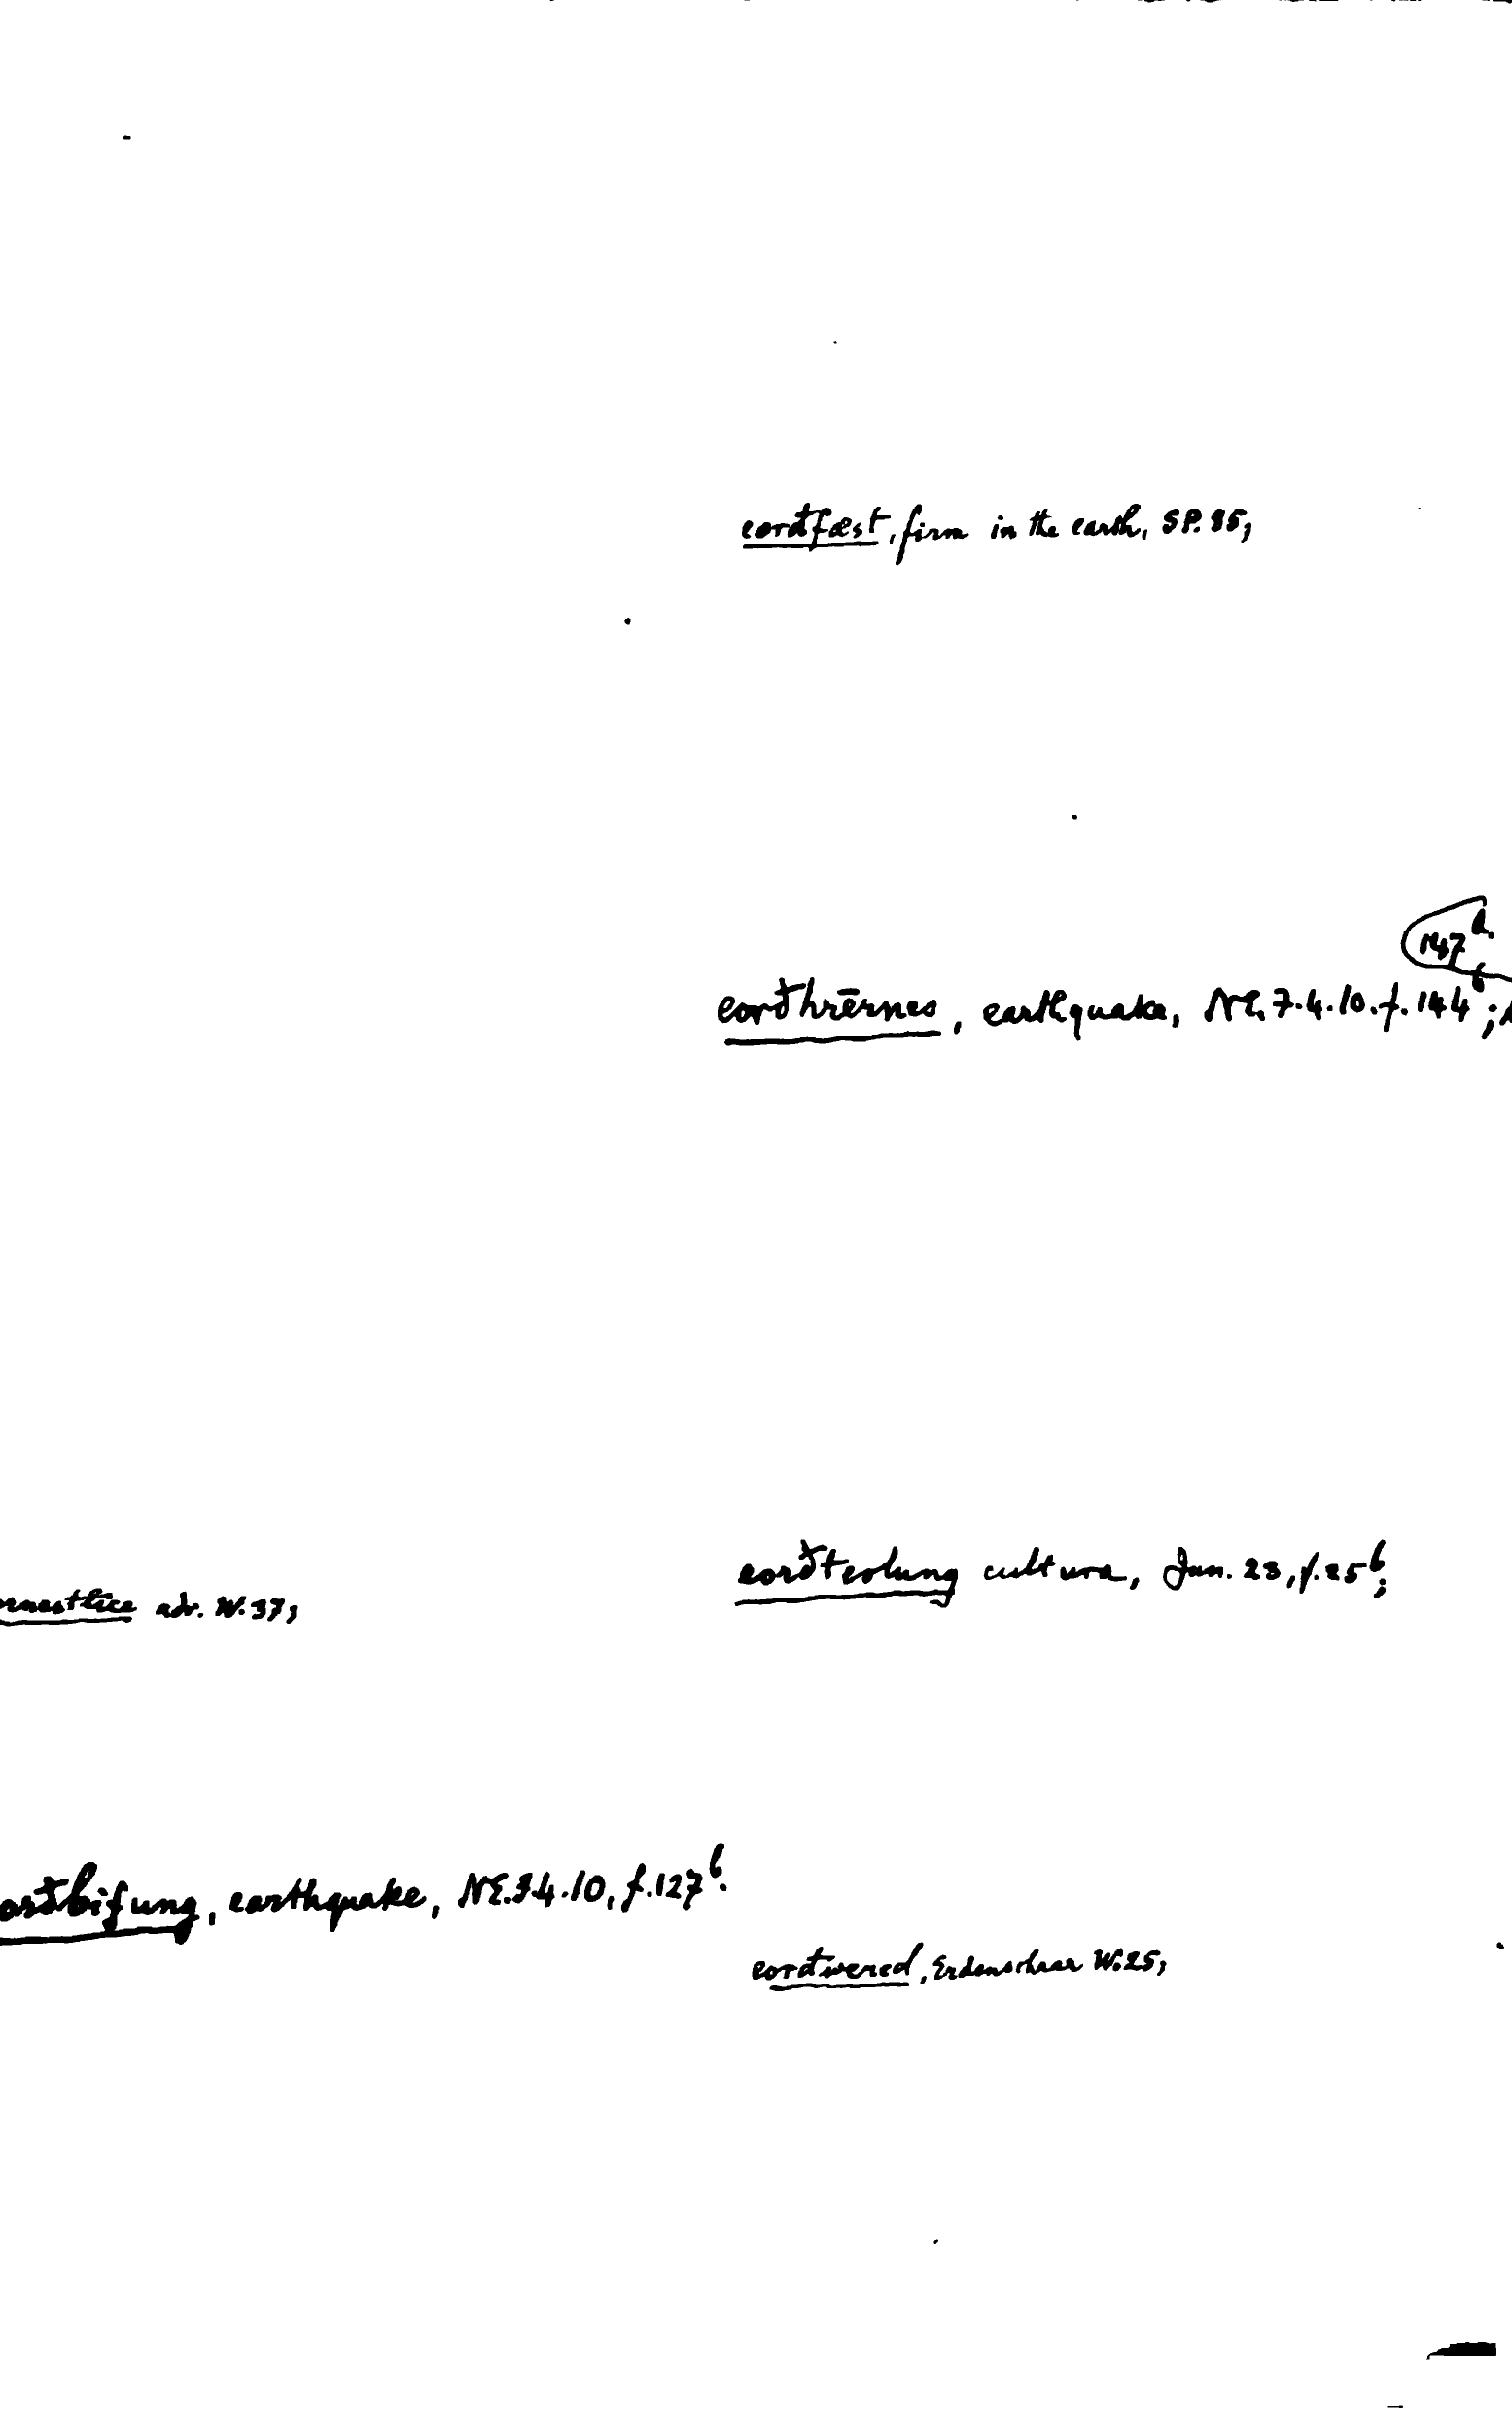 eorðfæst, firm in the earth, SP. 85;
147b.
eorðhrērnes, earthquake, NE. 7.4.10. f. 144b;
eorðteolung cultura, Jun. 23, f. 25b;
ernestlīce adv. W. 37;
orðbifung, earthquake, NE. 3.4.10, f. 127b.
eorðwered, Erdenschaar W. 25;